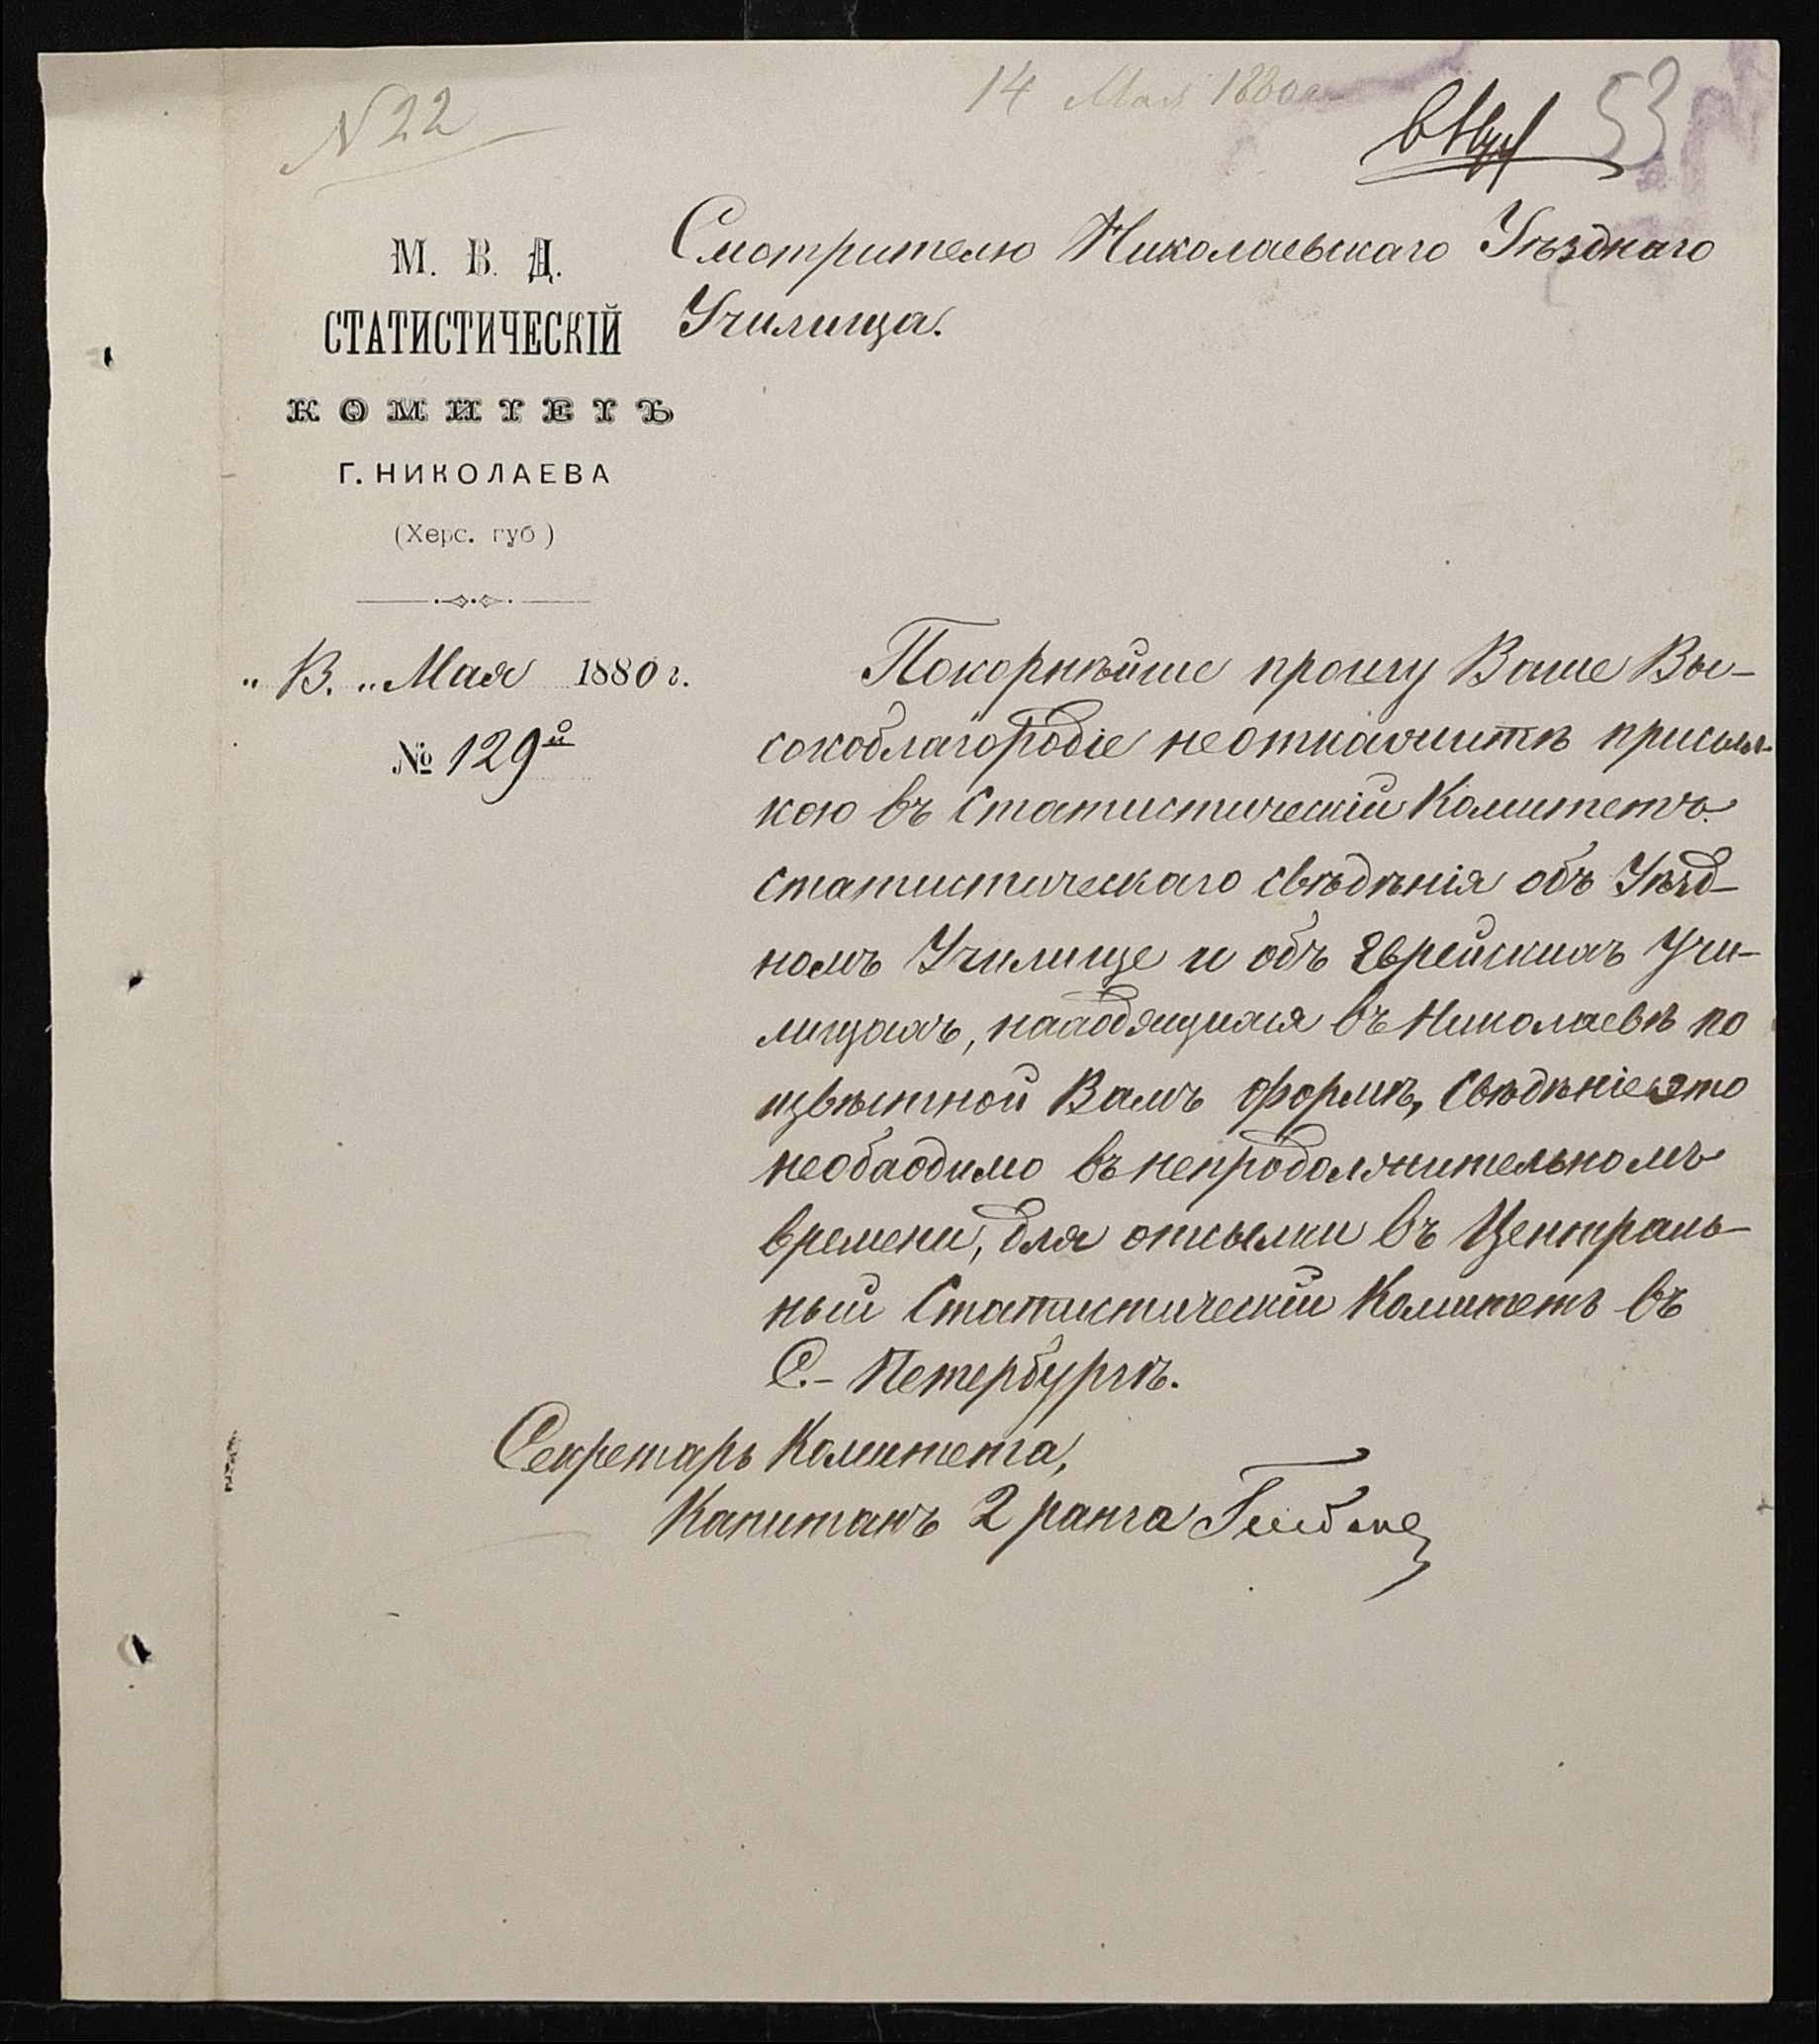 N 22
14 Мая 1880 г.
53
М. В. Д.
СТАТИСТИЧЕСКІЙ
КОМИТЕТЪ
Г. НИКОЛАЕВА
(Херс. губ)
"13." Мая 1880 г.
№ 129й
Смотрителю Николаевскаго Уѣзднаго
Училища.
Покорнѣйше прошу Ваше Вы-
сокоблагородіе неотказать присыл-
кою въ Статистическій Комитетъ
статистическаго свѣдѣнія объ Уѣзд-
номъ Училище и объ Еврейскихъ Учи-
лищахъ, находящихся въ Николаевѣ по
извѣстной Вамъ формѣ, Свѣдѣніе это
необходимо въ непродолжительномъ
времени, для отсылки въ Централь-
ный Статистическій Комитетъ въ
С.-Петербургѣ.
Секретарь Комитета,
Капитанъ 2 ранга